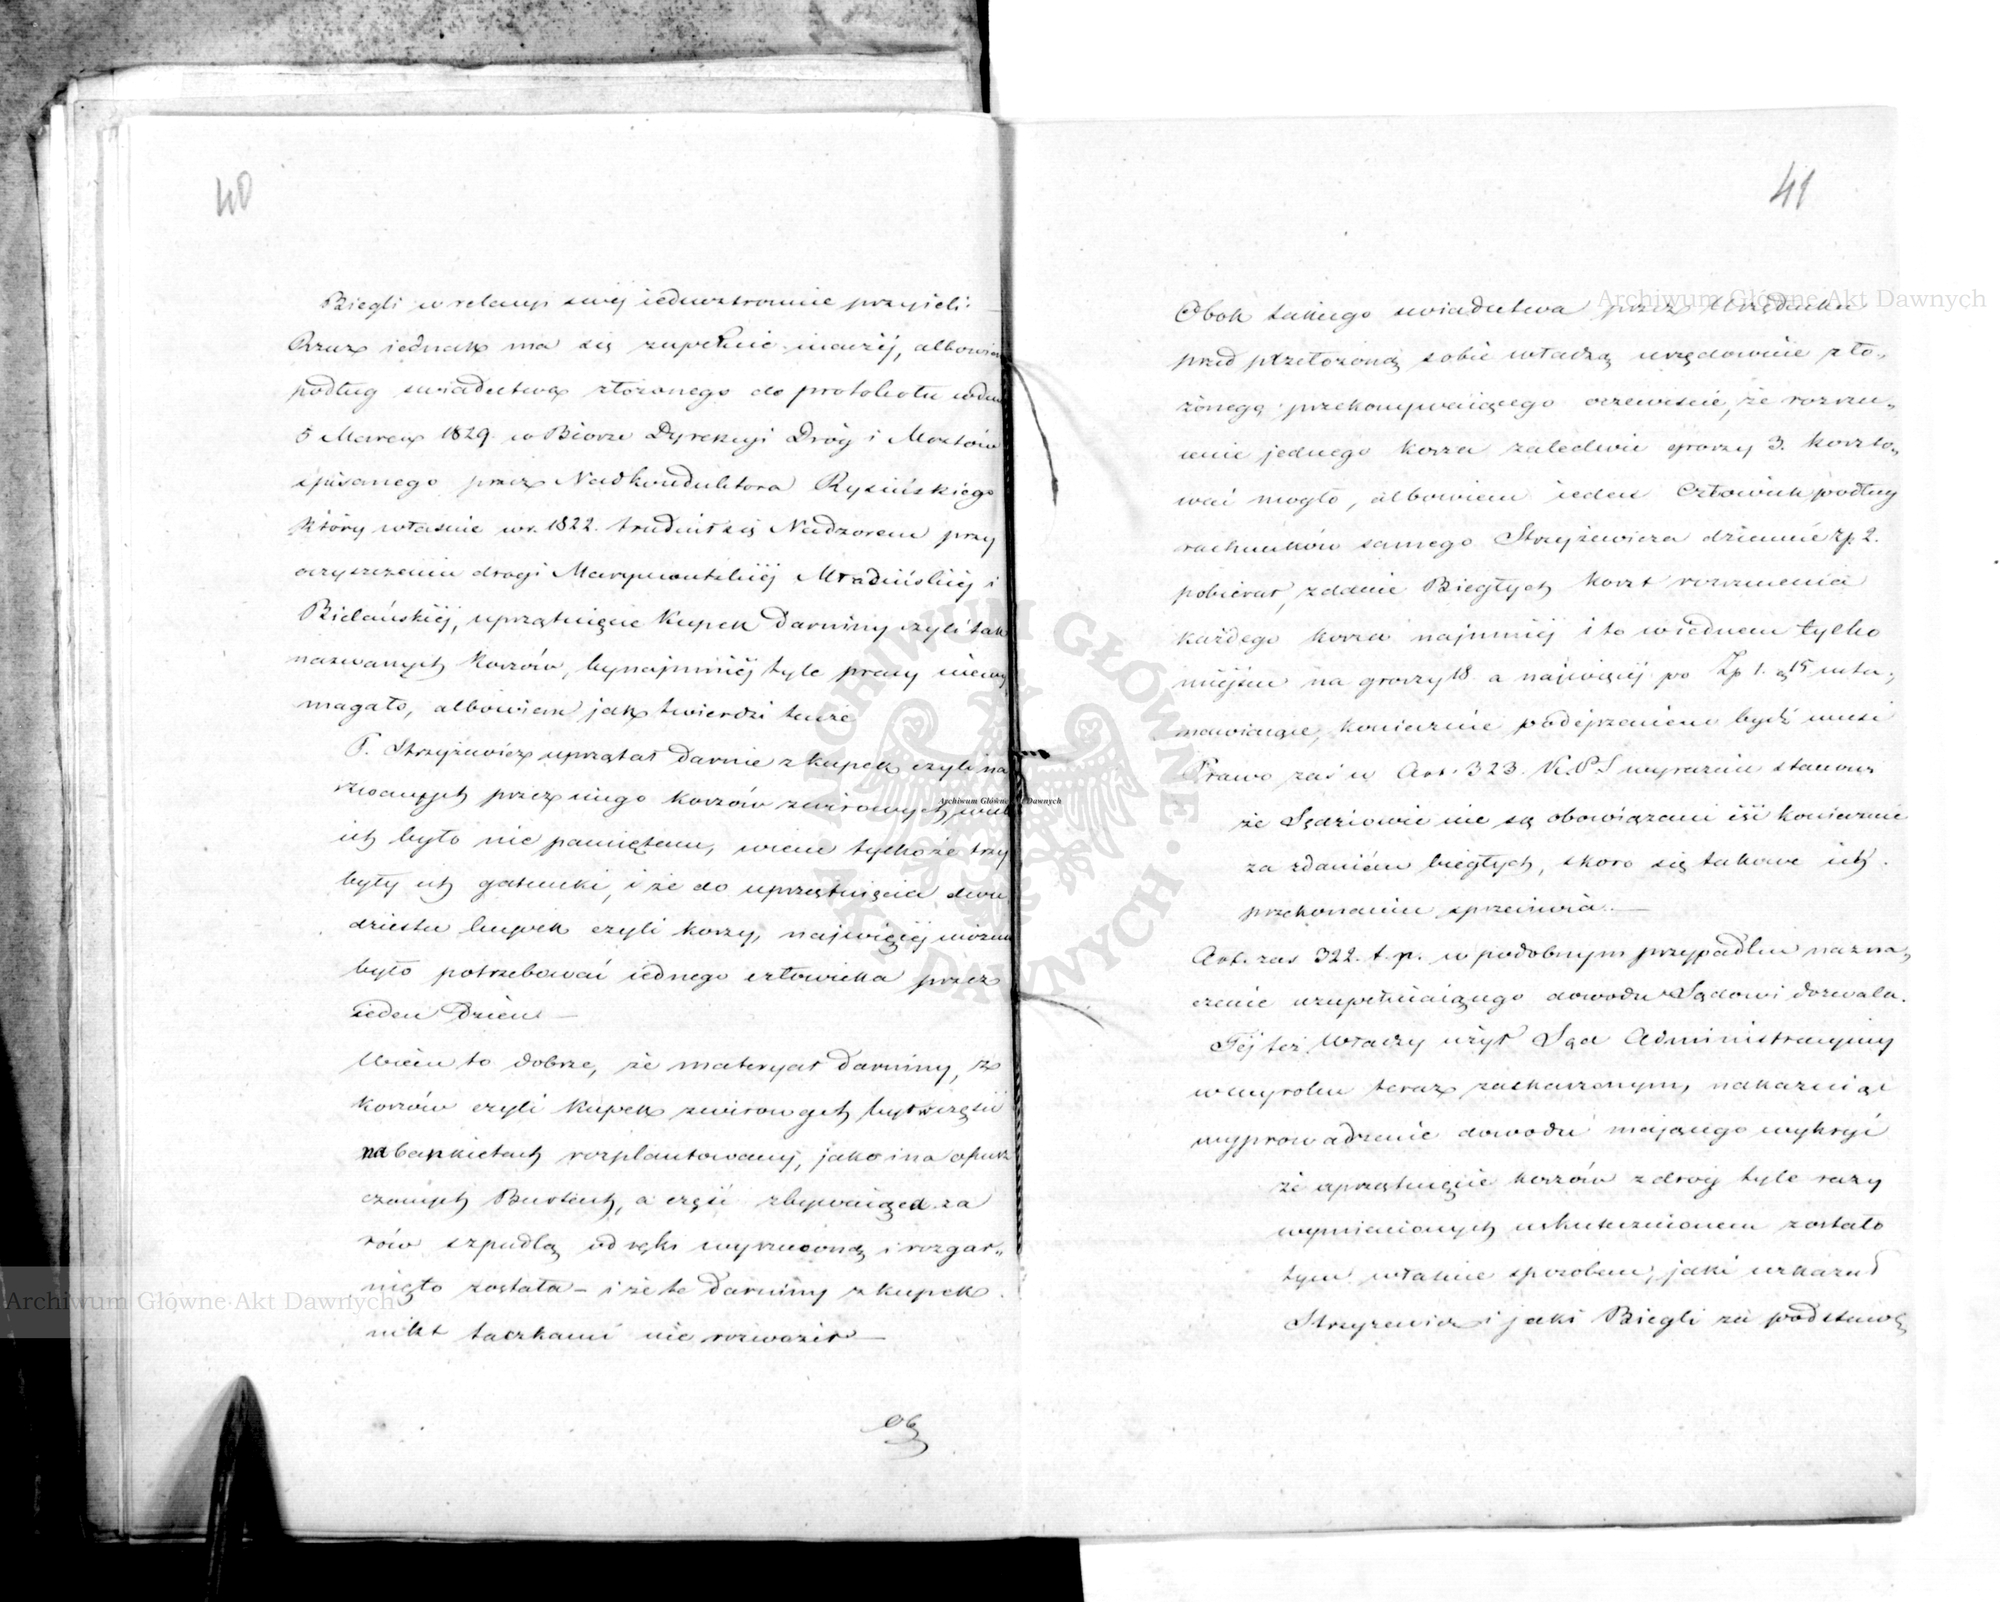 40
Biegli w relacyi swéj iednostronnie przyieli.
Rzecz iednak ma się zupełnie inaczéj, albowiem
podług swiadectwa złożonego do protokołu w dniu
5 Marca 1829 w Biorze Dyrekcyi Dróg i Mostów
spisanego przez Nadkonduktora Rysińskiego
który własnie w r. 1822. trudnił się Nadzorem przy
oczyszczeniu drogi Marymontskiéj Mładzińskiéj i
Bielańskiéj, uprzątnięcie kupek darniny czyli tak
nazwanych koszów, bynajmniéj tyle pracy niewy
magało, albowiem jak twierdzi tenże
P. Strzyżewicz uprzątał darnie z kupek czyli na
zwanych przez niego koszów zwirowych, wiele
ich było nie pamiętam, wiem tylko że trzy
były ich gatunki, i że do uprzątnięcia dwu
dziestu kupek czyli koszy, najwięcéj można
było potrzebować iednego człowieka przez
ieden Dzień —
Wiem to dobrze, że materyał darniny, z
koszów czyli kupek zwirowych był w części
na bankietach rozplantowany, jako i na opusz
czonych Burtach, a część zbywaiąca za
rów szpadlą od ręki wyrzuconą i rozgar„
niętą została – i że te darniny z kupek
nikt taczkami nie rozwoził —
Ob
41
Obok takiego swiadectwa przez Urzędnika
przed przełożoną sobie władzą urzędownie zło„
żonego przekonywaiącego oczewiscie, że rozrzu„
cenie jednego kosza zaledwie groszy 3. koszto„
wać mogło, albowiem ieden Człowiek podług
rachunków samego Strzyżewicza dziennie zp. 2.
pobierał, zdanie Biegłych koszt rozrzucenia
każdego kosza najmniéj i to w iednem tylko
miejscu na groszy 18 a najwięcéj po Zp 1. g 15 usta„
nawiaiące, koniecznie podéjrzeniem bydź musi
Prawo zaś w Art. 323. K.P.S wyraznie stanowi
że Sędziowie nie są obowiązani iść koniecznie
za zdaniem biegłych, skoro się takowe ich
przekonaniu sprzeciwia. —
Art. zas 322. t. p. w podobnym przypadku nazna„
czenie uzupełniaiącego dowodu Sądowi dozwala.
Téj też Władzy użył Sąd Administracyiny
w wyroku teraz zaskarzonym, nakazuiąc
wyprowadzenie dowodu maiącego wykryć
że uprzątnięcie koszów z dróg tyle razy
wymienionych uskutecznionem zostało
tym własnie sposobem, jaki wskazał
Strzyzewicz i jaki Biegli za podstawę
Archiwum Główne Akt Dawnych
Archiwum Główne Akt Dawnych
Archiwum Główne Akt Dawnych
ARCHIWUM GŁÓWNE AKT DAWNYCH